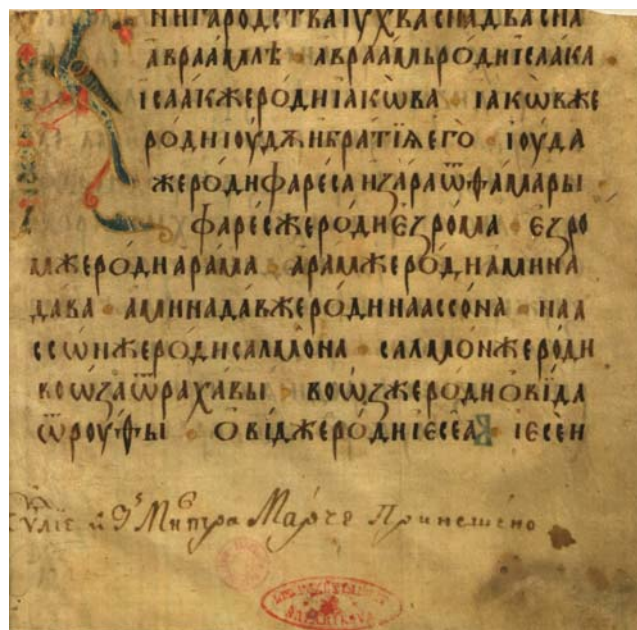 НИГАРОДСТВАІУХВАСНАДВ҃АСНА
АВРАА́МЛѢ · АВРАА́МЬРО́ДИІСАА́КА
ІСАА́КЖЕРО́ДИІА́КѠВА · ІА́КѠВЖЕ
РО́ДИІОУ́ДѪИБРА́ТЇѦЕГО̀ · ІОУ́ДА
ЖЕРО́ДИФАРЕ́САИЗА́РАѾФАМА́РЫ
ФАРЕ́СЖЕРО́ДИЕЗРО́МА · ЕЗРО
МЖЕРО́ДИАРА́МА · АРА́МЖЕРО́ДИАМИНА
ДА́ВА · АМИНАДА́ВЖЕРО́ДИНААССО́НА · НАА
ССѠ́НЖЕРО́ДИСАЛМО́НА · САЛМО́НЖЕРО́ДИ
ВОѠ́ЗАѾРАХА́ВЫ · ВОѠ́ЗЖЕРО́ДИОВИ́ДА
ѾРОУ́ФЫ · ОВИ́ДЖЕРО́ДИІЕСЕ́А · ІЕСЕ́Н
Марче Принешено